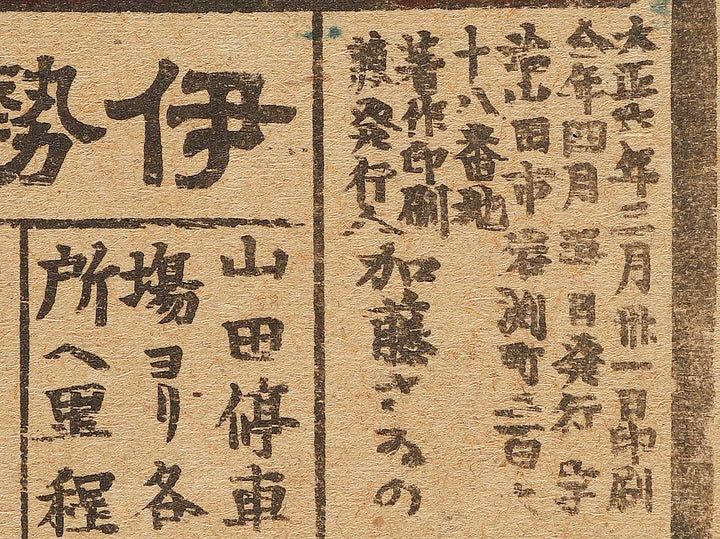 大正六年三月卅一日印刷
仝年四月 日発行 宇
治山田市岩渕町三百
十八番地
著作印刷
兼発行人 加藤
伊勢
山田停車
場ヨリ各
所ヘ里程